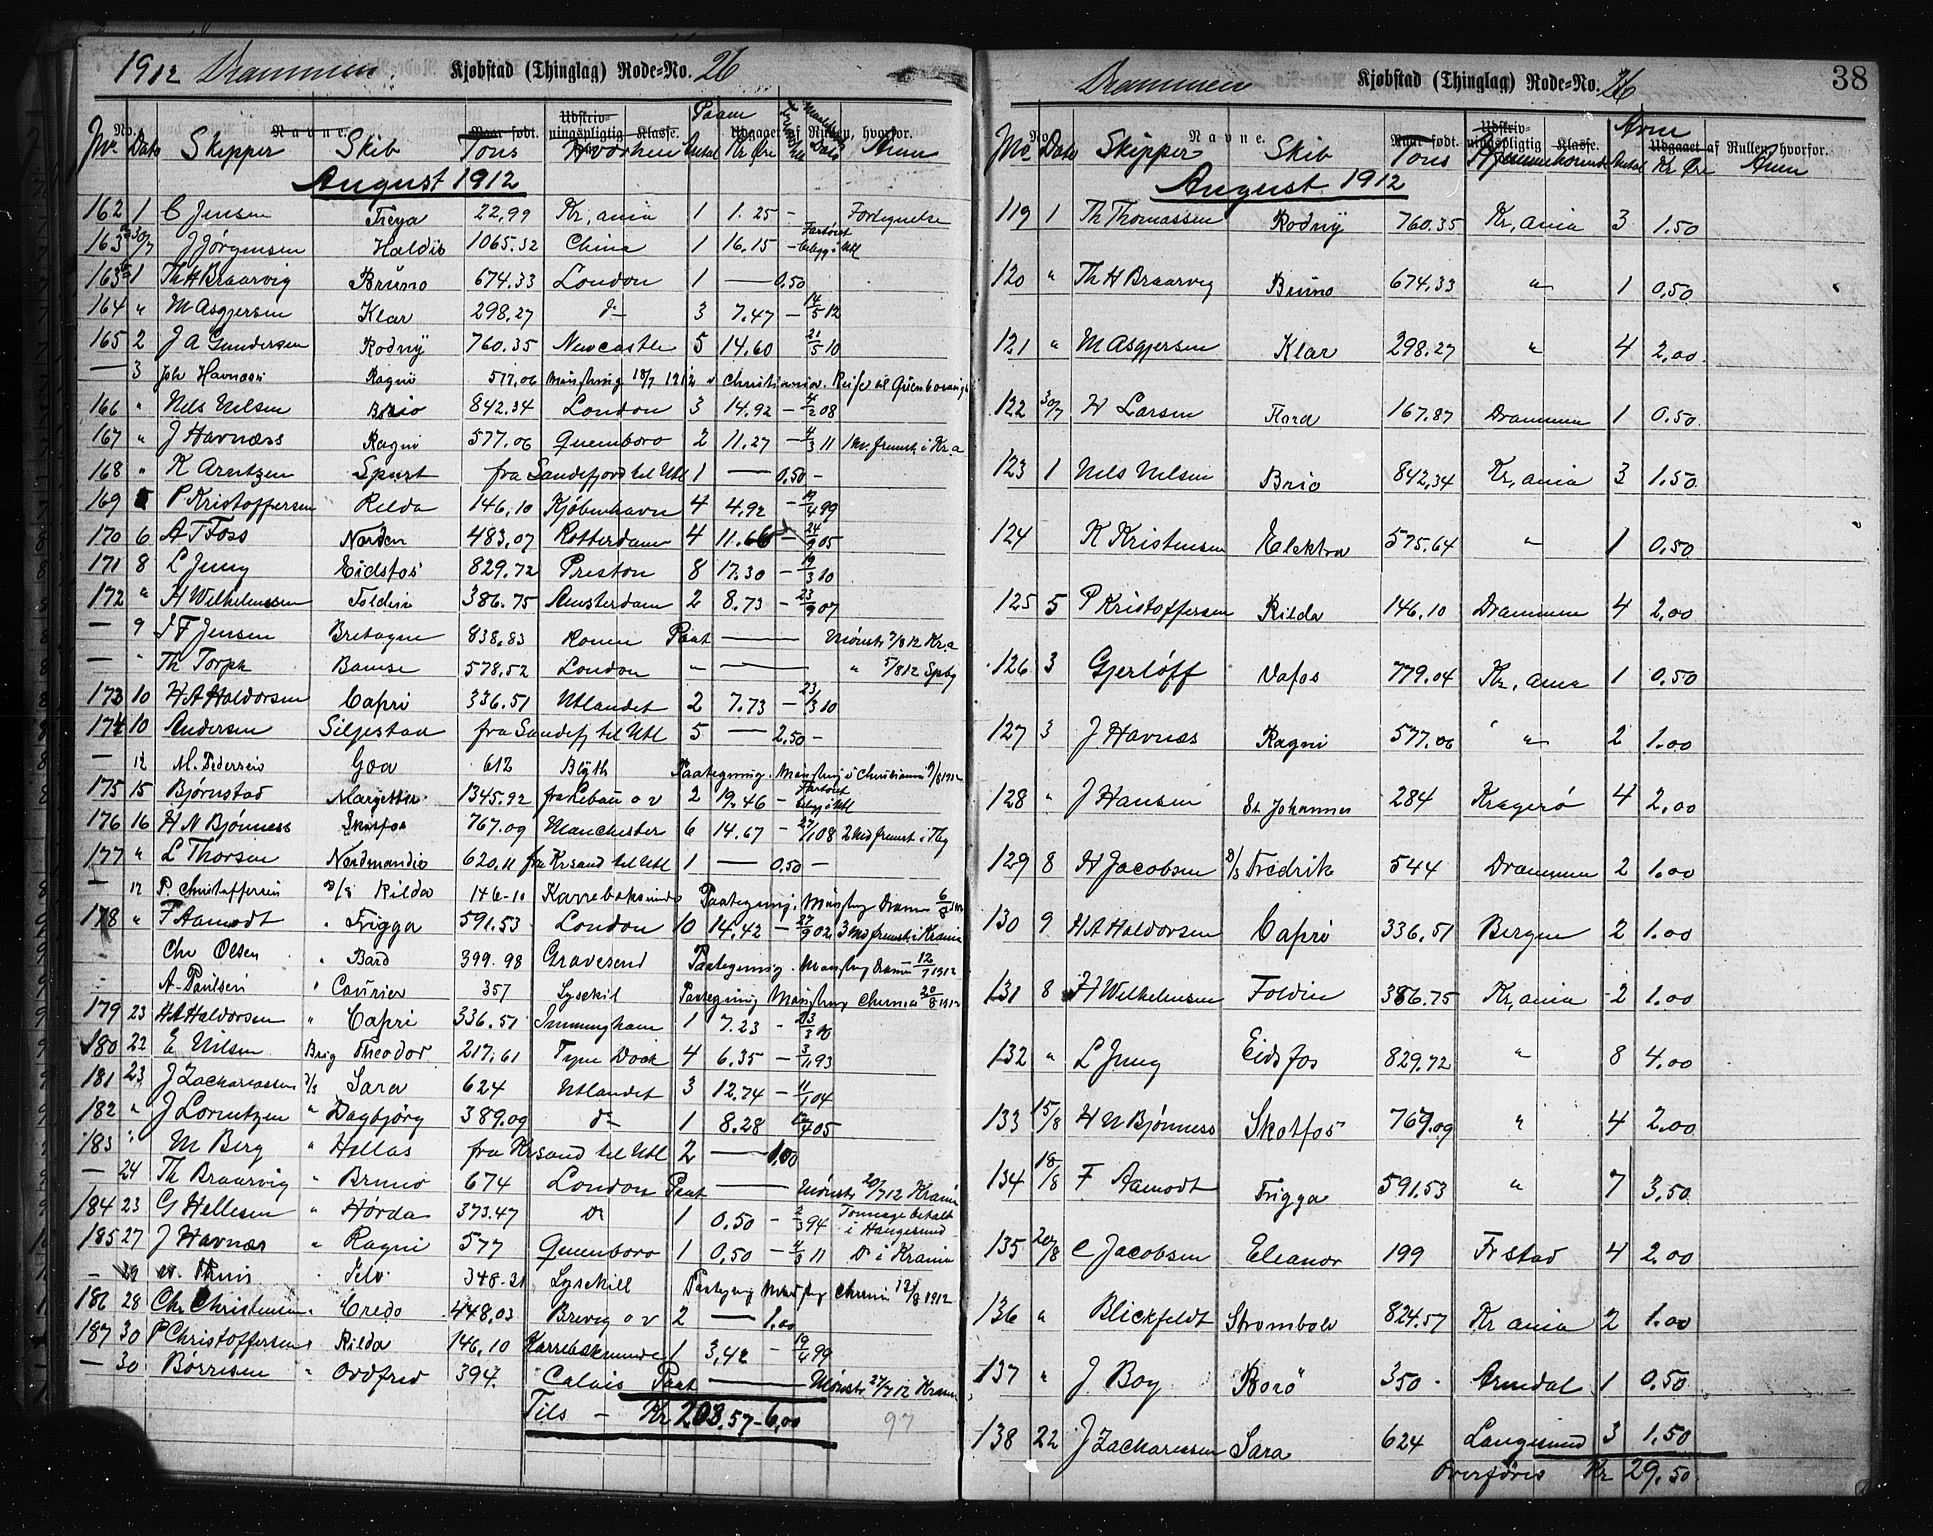 1912 Drammen. Kjøbstad (Thinglag) Rode-No. 26
No. Navne. Naar født. Udskriv-ningspligtig Klasse. Udgaaet af Rullen, hvorfor.
No Dato Skipper Skib Tons Hvorhen Paam Antal Kr Øre Dato Anm
August 1912
162 1 C Jensen Freya 22,99 Kr,ania 1 1.25 - Fortegnelse
163a 30/7 J Jørgensen Haldis 1065.32 China 1 16.15 -
163b 1 Th H Braarvig Bruno 674.33 London 1 — 0,50
164 " M Asgjersen Klar 298.27 do 3 7.47 - 14/5 12
165 2 J A Gundersen Rodny 760.35 Newcastle 5 14.60 21/5 10
— 3 Joh Havnæss Ragni 577,06 Mønstring 18/7 1912 i Christiania. Reise til Quenboroug
166 " Nils Nilsen Brio 842.34 London 3 14.92 - 4/2 08
167 " J Havnæss Ragni 577.06 Quenboro 2 11.27 - 4/3 11 1 M. fremst. i Kra
168 " K Arntzen Spurt fra Sandefjord til Utl 1 — 0,50 -
169 5 P Kristoffersen Rilda 146.10 Kjøbenhavn 4 4.92 - 19/4 99
170 6 A T Foss Norden 483,07 Rotterdam 4 11.66 - 24/9 05
171 8 L Jung Eidsfos 829.72 Preston 8 17.30 - 19/3 10
172 " H Wilhelmsen Foldin 386.75 Amsterdam 2 8.73 - 23/9 07
— 9 J F Jensen Bretagne 838,83 Rouen Paat — Mønstr 7/8 12 Kra
— " Th Torph Bamse 578.52 London " — " 5/8 12 Spbg
173 10 H A Haldorsen Capri 336.51 Utlandet 2 7.73 - 23/3 10
174 10 Andersen Siljestad fra Sandefj til Utl 5 — 2.50 -
— 12 M. Pedersen Goa 612 Blyth Paategning. Mønstring i Christiania 9/8 1912
175 15 Bjørnstad Margretha 1345.92 fra Libau o v 2 19.46 -
176 16 H N Bjønness Skotfos 767.09 Manchester 6 14.67 - 27/1 08 2 Md fremst. i Tbg
177 " L Thorsen Nordmandie 620.11 fra Krsand til Utl 1 — 0,50 -
— 12 P. Christoffersen D/S Rilda 146.10 Karrebeksminde Paategning. Mønstring Dramm 6/8 1912
178 " F Aamodt " Frigga 591.53 London 10 14.42 - 27/9 02 3 Md fremst. i Krania
Chr Olsen " Bard 399.98 Gravesend Paategning. Mønstring Dramm 12/7 1912
A. Paulsen " Courier 357 Lysekil Paategning Mønstring Chrnia 20/8 1912
179 23 H A Haldorsen " Capri 336.51 Immingham 1 7.23 - 23/3 10
180 22 E Nilsen Brig Theodor 217.61 Tyne Dock 4 6.35 - 3/11 93
181 23 J Zachariassen D/S Sara 624 Utlandet 3 12.74 - 11/1 04
182 " J Lorentzen " Dagbjørg 389.09 do 1 8.28 05
183 " M Berg " Hellas fra Krsand til Utl 2 — 1,00
— 24 Th Braarvig " Bruno 674 London Paat — Mønstr 20/7 12 Krania
184 23 G Hellesen " Hørda 373.47 do 1 0.50 - 2/3 94 Tonnage betalt i Haugesund
185 27 J Havnæs " Ragni 577 Quenboro 1 0,50 - 4/3 11 Do i Krania
— 29 348.21 Lysekill Paategng Mønstrg Chrnia 12/8 1912
186 28 Chr Christensen " Credo 448.03 Brevig o v 2 — 1.00
187 30 P Christoffersen " Rilda 146,10 Karrebeksminde 1 3,42 - 19/4 99
— 30 Børresen " Oddfred 394. Calais Paat — Mønstr 27/7 12 Krania
Tils — Kr 208.57 - 6,00 97
Drammen Kjøbstad (Thinglag) Rode-No. 26 38
No. Navne. Naar født. Udskriv-ningspligtig Klasse. Udgaaet af Rullen, hvorfor.
No Dato Skipper Skib Tons Hjemmehørende Avm Antal Kr Øre Anm
August 1912
119 1 Th Thomassen Rodny 760.35 Kr,ania 3 1.50
120 " Th H Braarvig Bruno 674.33 " 1 0,50
121 " M Asgjersen Klar 298.27 " 4 2,00
122 30/7 H Larsen Flora 167.87 Drammen 1 0.50
123 1 Nils Nilsen Brio 842,34 Kr,ania 3 1.50
124 K Kristensen Elektra 575.64 " 1 0.50
125 5 P Kristoffersen Rilda 146.10 Drammen 4 2,00
126 3 Gjerløff Vafos 779.04 Kr,ania 1 0.50
127 3 J Havnæs Ragni 577.06 " 2 1.00
128 " J Hansen St. Johannes 284 Kragerø 4 2.00
129 8 H Jacobsen D/S Fredrik 544 Drammen 2 1.00
130 9 H A Haldorsen Capri 336.51 Bergen 2 1.00
131 8 H Wilhelmsen Foldin 386.75 Kr,ania 2 1.00
132 " L Jung Eidsfos 829.72 " 8 4.00
133 15/8 H N Bjønness Skotfos 767.09 " 4 2.00
134 18/8 F Aamodt Frigga 591.53 " 7 3.50
135 20/8 C Jacobsen Eleanor 199 Frstad 4 2.00
136 " Blickfeldt Stromboli 824.57 Kr ania 2 1.00
137 " J. Boy Borø 350 Arendal 1 0.50
138 22 J Zachariassen Sara 624 Langesund 3 1.50
Overføres Kr 29.50